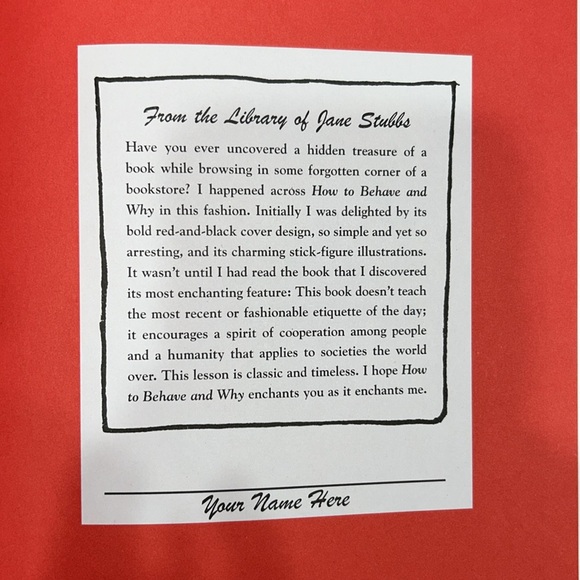 From the Library of Jane Stubbs
Have you ever uncovered a hidden treasure of a
book while browsing in some forgotten corner of a
bookstore? I happened across How to Behave and
Why in this fashion. Initially I was delighted by its
bold red-and-black cover design, so simple and yet so
arresting, and its charming stick-figure illustrations.
It wasn't until I had read the book that I discovered
its most enchanting feature: This book doesn't teach
the most recent or fashionable etiquette of the day;
it encourages a spirit of cooperation among people
and a humanity that applies to societies the world
over. This lesson is classic and timeless. I hope How
to Behave and Why enchants you as it enchants me.
Your Name Here